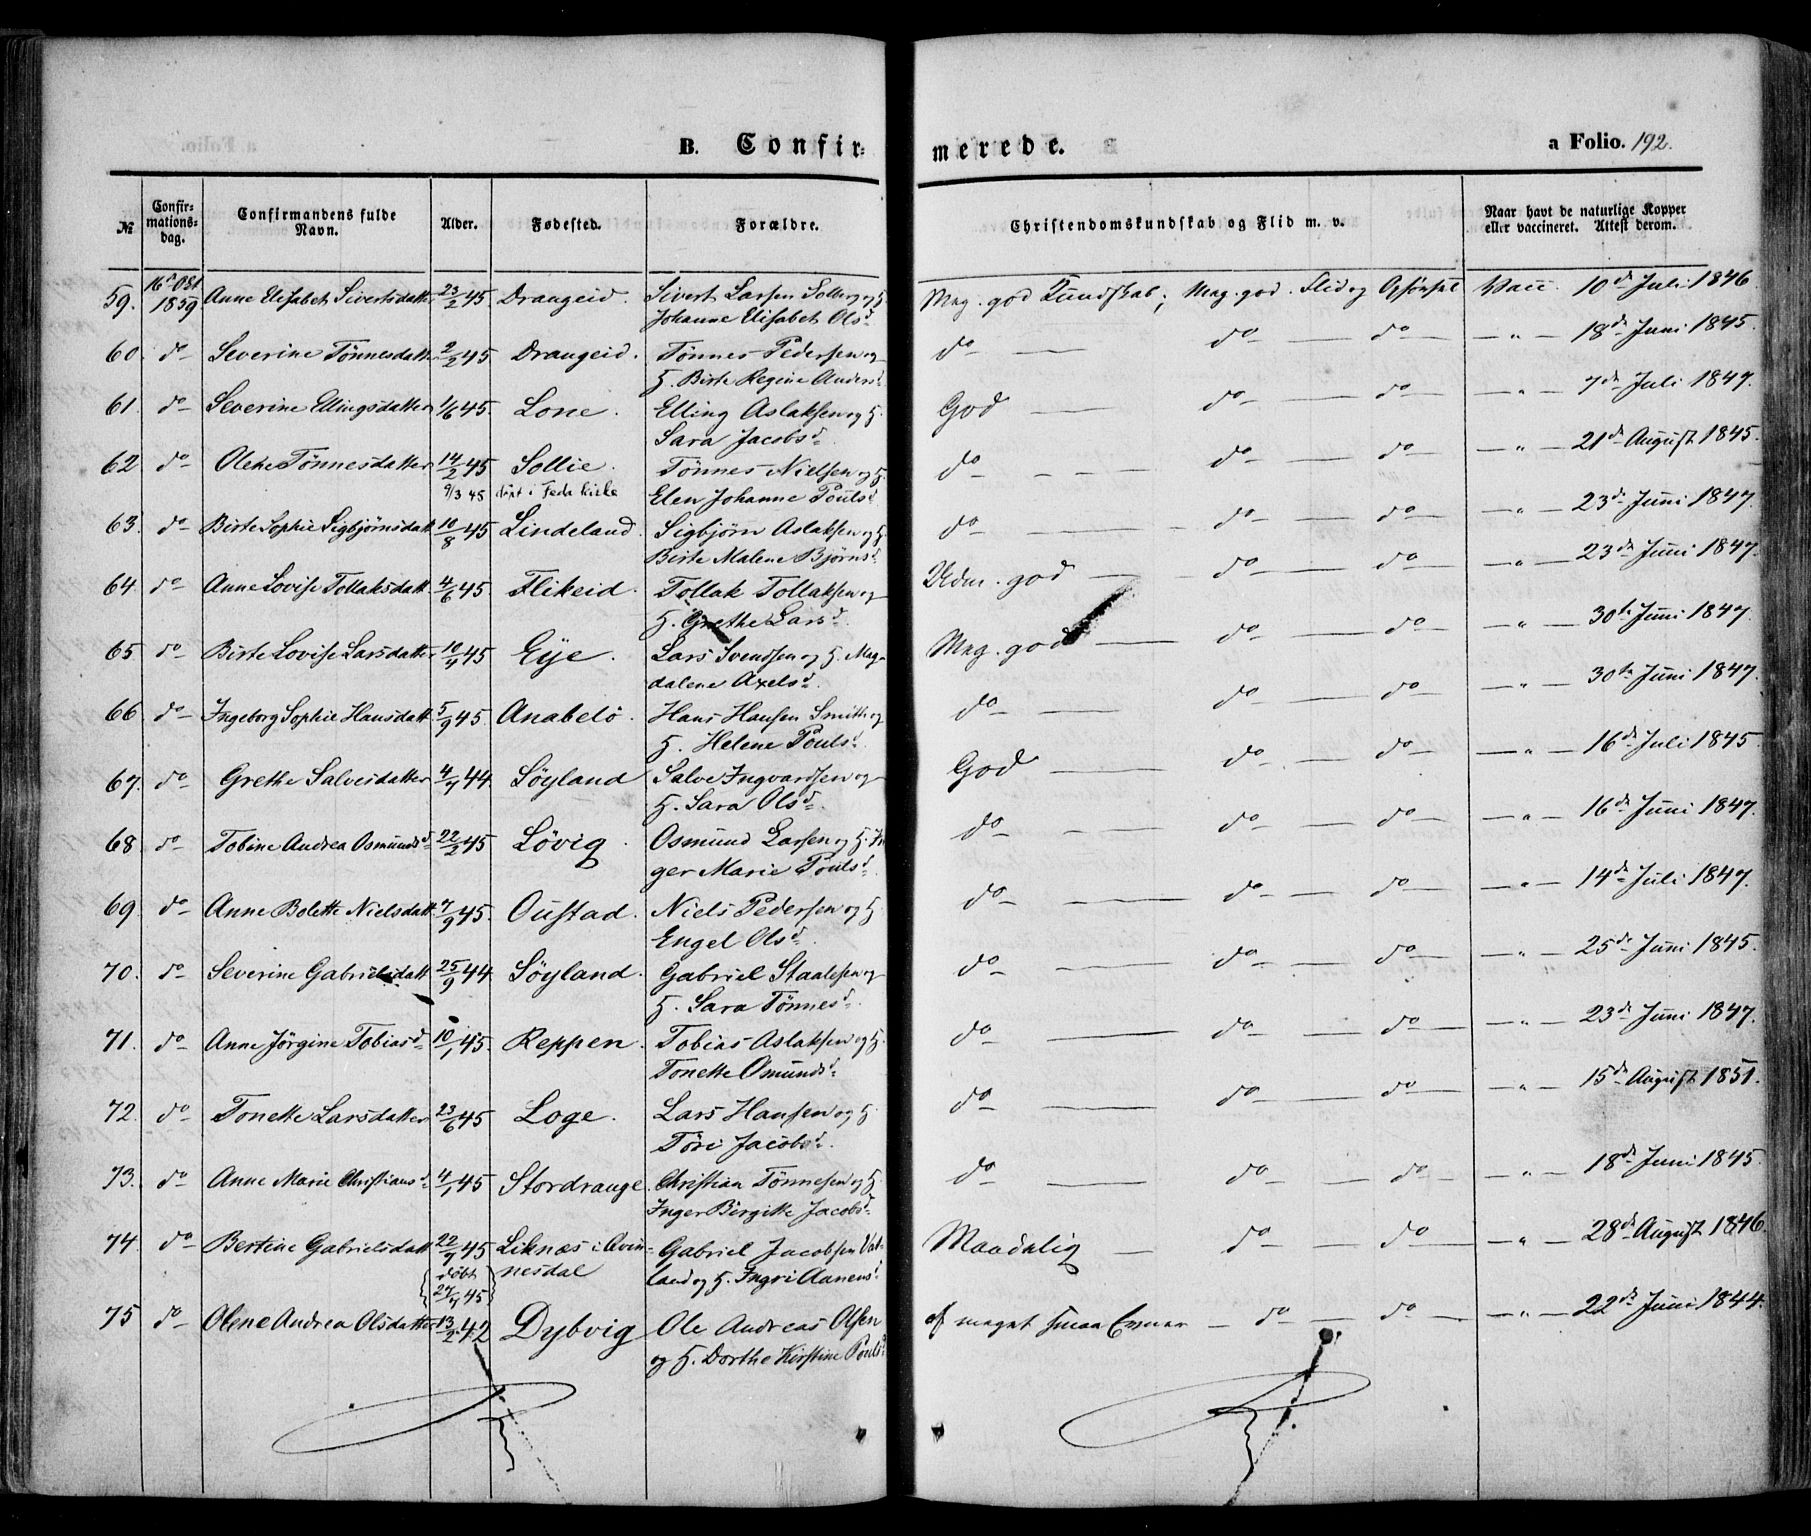 B. Confir-
merede.
a Folio. 192.
№
Confir-
mations-
dag.
Confirmandens fulde
Navn.
Alder.
Fødested.
Forældre.
Christendomskundskab og Flid m. v.
Naar havt de naturlige Kopper
eller vaccineret. Attest derom.
59. 16d Obr 1859 Anne Elisabet Sivertsdatter 23/2 45 Drangeid. Sivert Larsen Solberg og H. Meg. god Kundskab; Meg. god Flid og Opførsel Vacc. 10de Juli 1846
Johanne Elisabet Olsd
60. do Severine Tønnesdatter 2/2 45 Drangeid. Tønnes Pedersen og do — do — do — " — 18de Juni 1845.
H. Birte Regine Andersd
61. do Severine Ellingsdatter 1/6 45. Lone. Elling Aslaksen og H. God — do — do — " — 7de Juli 1847.
Sara Jacobsd
62. do Olene Tønnesdatter 14/2 45 Sollie. Tønnes Nielsen og H. do — do — do — " — 21de August 1845.
9/3 45 døpt i Feda kirke Elen Johanne Poulsd
63. do Birte Sophie Sigbjørnsdatt 10/8 45 Lindeland. Sigbjørn Aslaksen og H. do — do — do — " — 23de Juni 1847.
Birte Malene Bjørnsd
64. do Anne Lovise Tollaksdatt 4/6 45. Flikeid. Tollak Tollaksen og Udm. god — do — do — " — 23de Juni 1847.
H. Grethe Larsd
65. do Birte Lovise Larsdatter 10/4 45 Eye. Lars Svendsen og H. Mag- Meg. god — do — do — " — 30te Juni 1847.
dalene Axelsd
66. do Ingeborg Sophie Hansdatt. 5/9 45. Anabelø. Hans Hansen Smith og do — do — do — " — 30te Juni 1847.
H. Helene Poulsd
67. do Grethe Salvesdatter 4/4 44. Søyland Salve Ingvardsen og God — do — do — " — 16de Juli 1845
H. Sara Olsd
68. do Tobine Andrea Osmundsd 22/2 45 Løvig. Osmund Larsen og H. In- do — do — do — " — 16de Juni 1847.
ger Marie Poulsd
69. do Anne Bolette Nielsdatt. 7/9 45. Oustad. Niels Pedersen og H. do — do — do — " — 14de Juli 1847.
Engel Olsd
70. do Severine Gabrielsdatt 25/9 44. Søyland. Gabriel Staalesen og do — do — do — " — 25de Juni 1845.
H. Sara Tønnesd
71. do Anne Jørgine Tobiasd 10/1 45. Reppen. Tobias Aslaksen og H. do — do — do — " — 23de Juni 1847.
Tonette Omundsd
72. do Tonette Larsdatter 23/6 45 Loge. Lars Hansen og H. do — do — do — " — 15de August 1851.
Tøri Jacobsd
73. do Anne Marie Christiansd 4/1 45 Stordrange. Christian Tønnesen og H. do — do — do — " — 18de Juni 1845.
Inger Birgitte Jacobsd
74. do Bertine Gabrielsdatt. 22/4 45 Liknæs i Qvin- Gabriel Jacobsen Vat- Maadelig — do — do — " — 28de August 1846.
døbt 27/4 45 nesdal land og H. Ingri Aanensd
75 do Olene Andrea Olsdatter 13/2 42 Dybvig Ole Andreas Olsen af meget smaa Evner — do — do — " — 22de Juni 1844.
og H. Dorthe Kirstine Poulsd